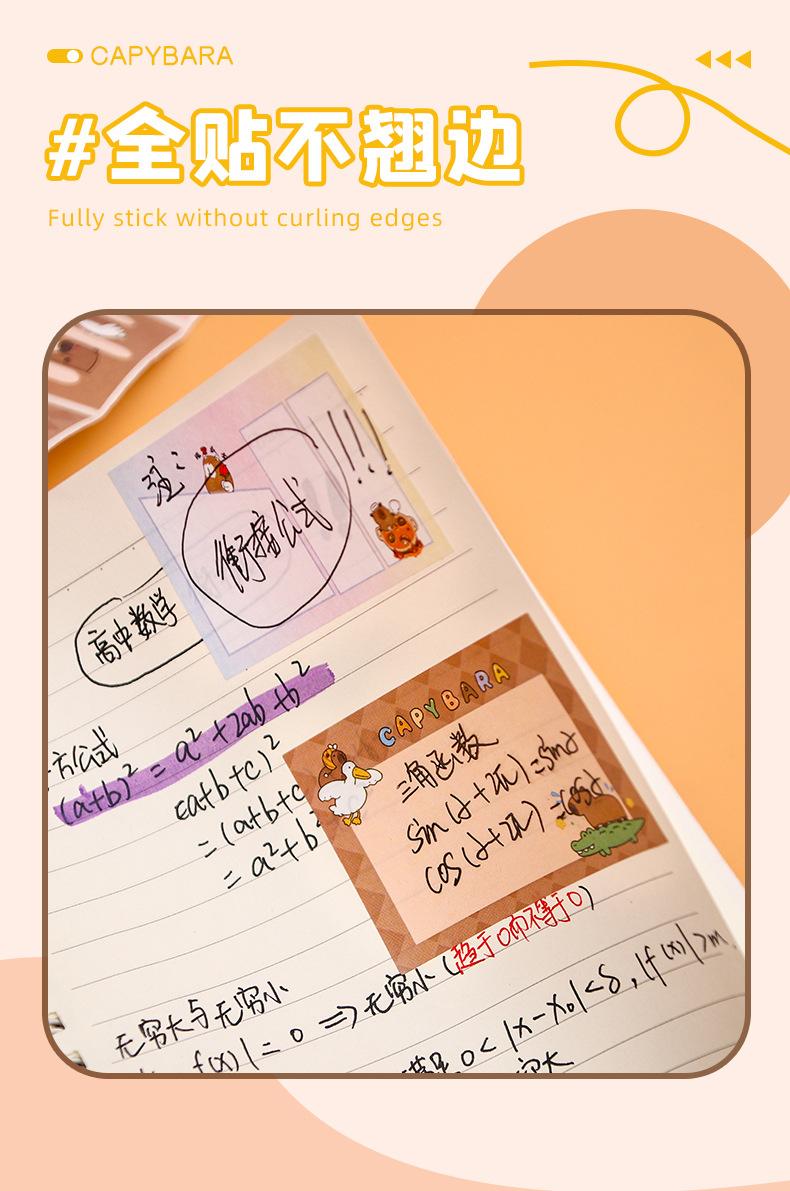 CAPYBARA
#全贴不翘边
Fully stick without curling edges
注:
衔接公式
!!!
高中数学
方公式
(a+b)² = a²+2ab+b²
(a+b+c)²
=(a+b+c
= a²+b²
CAPYBARA
三角函数
sin(α+2π)=sinα
cos(α+2π)=cosα
(趋于0而不等于0)
无穷大与无穷小
f(x)|=0 => 无穷小
0<|x-x₀|<δ,|f(x)|>m